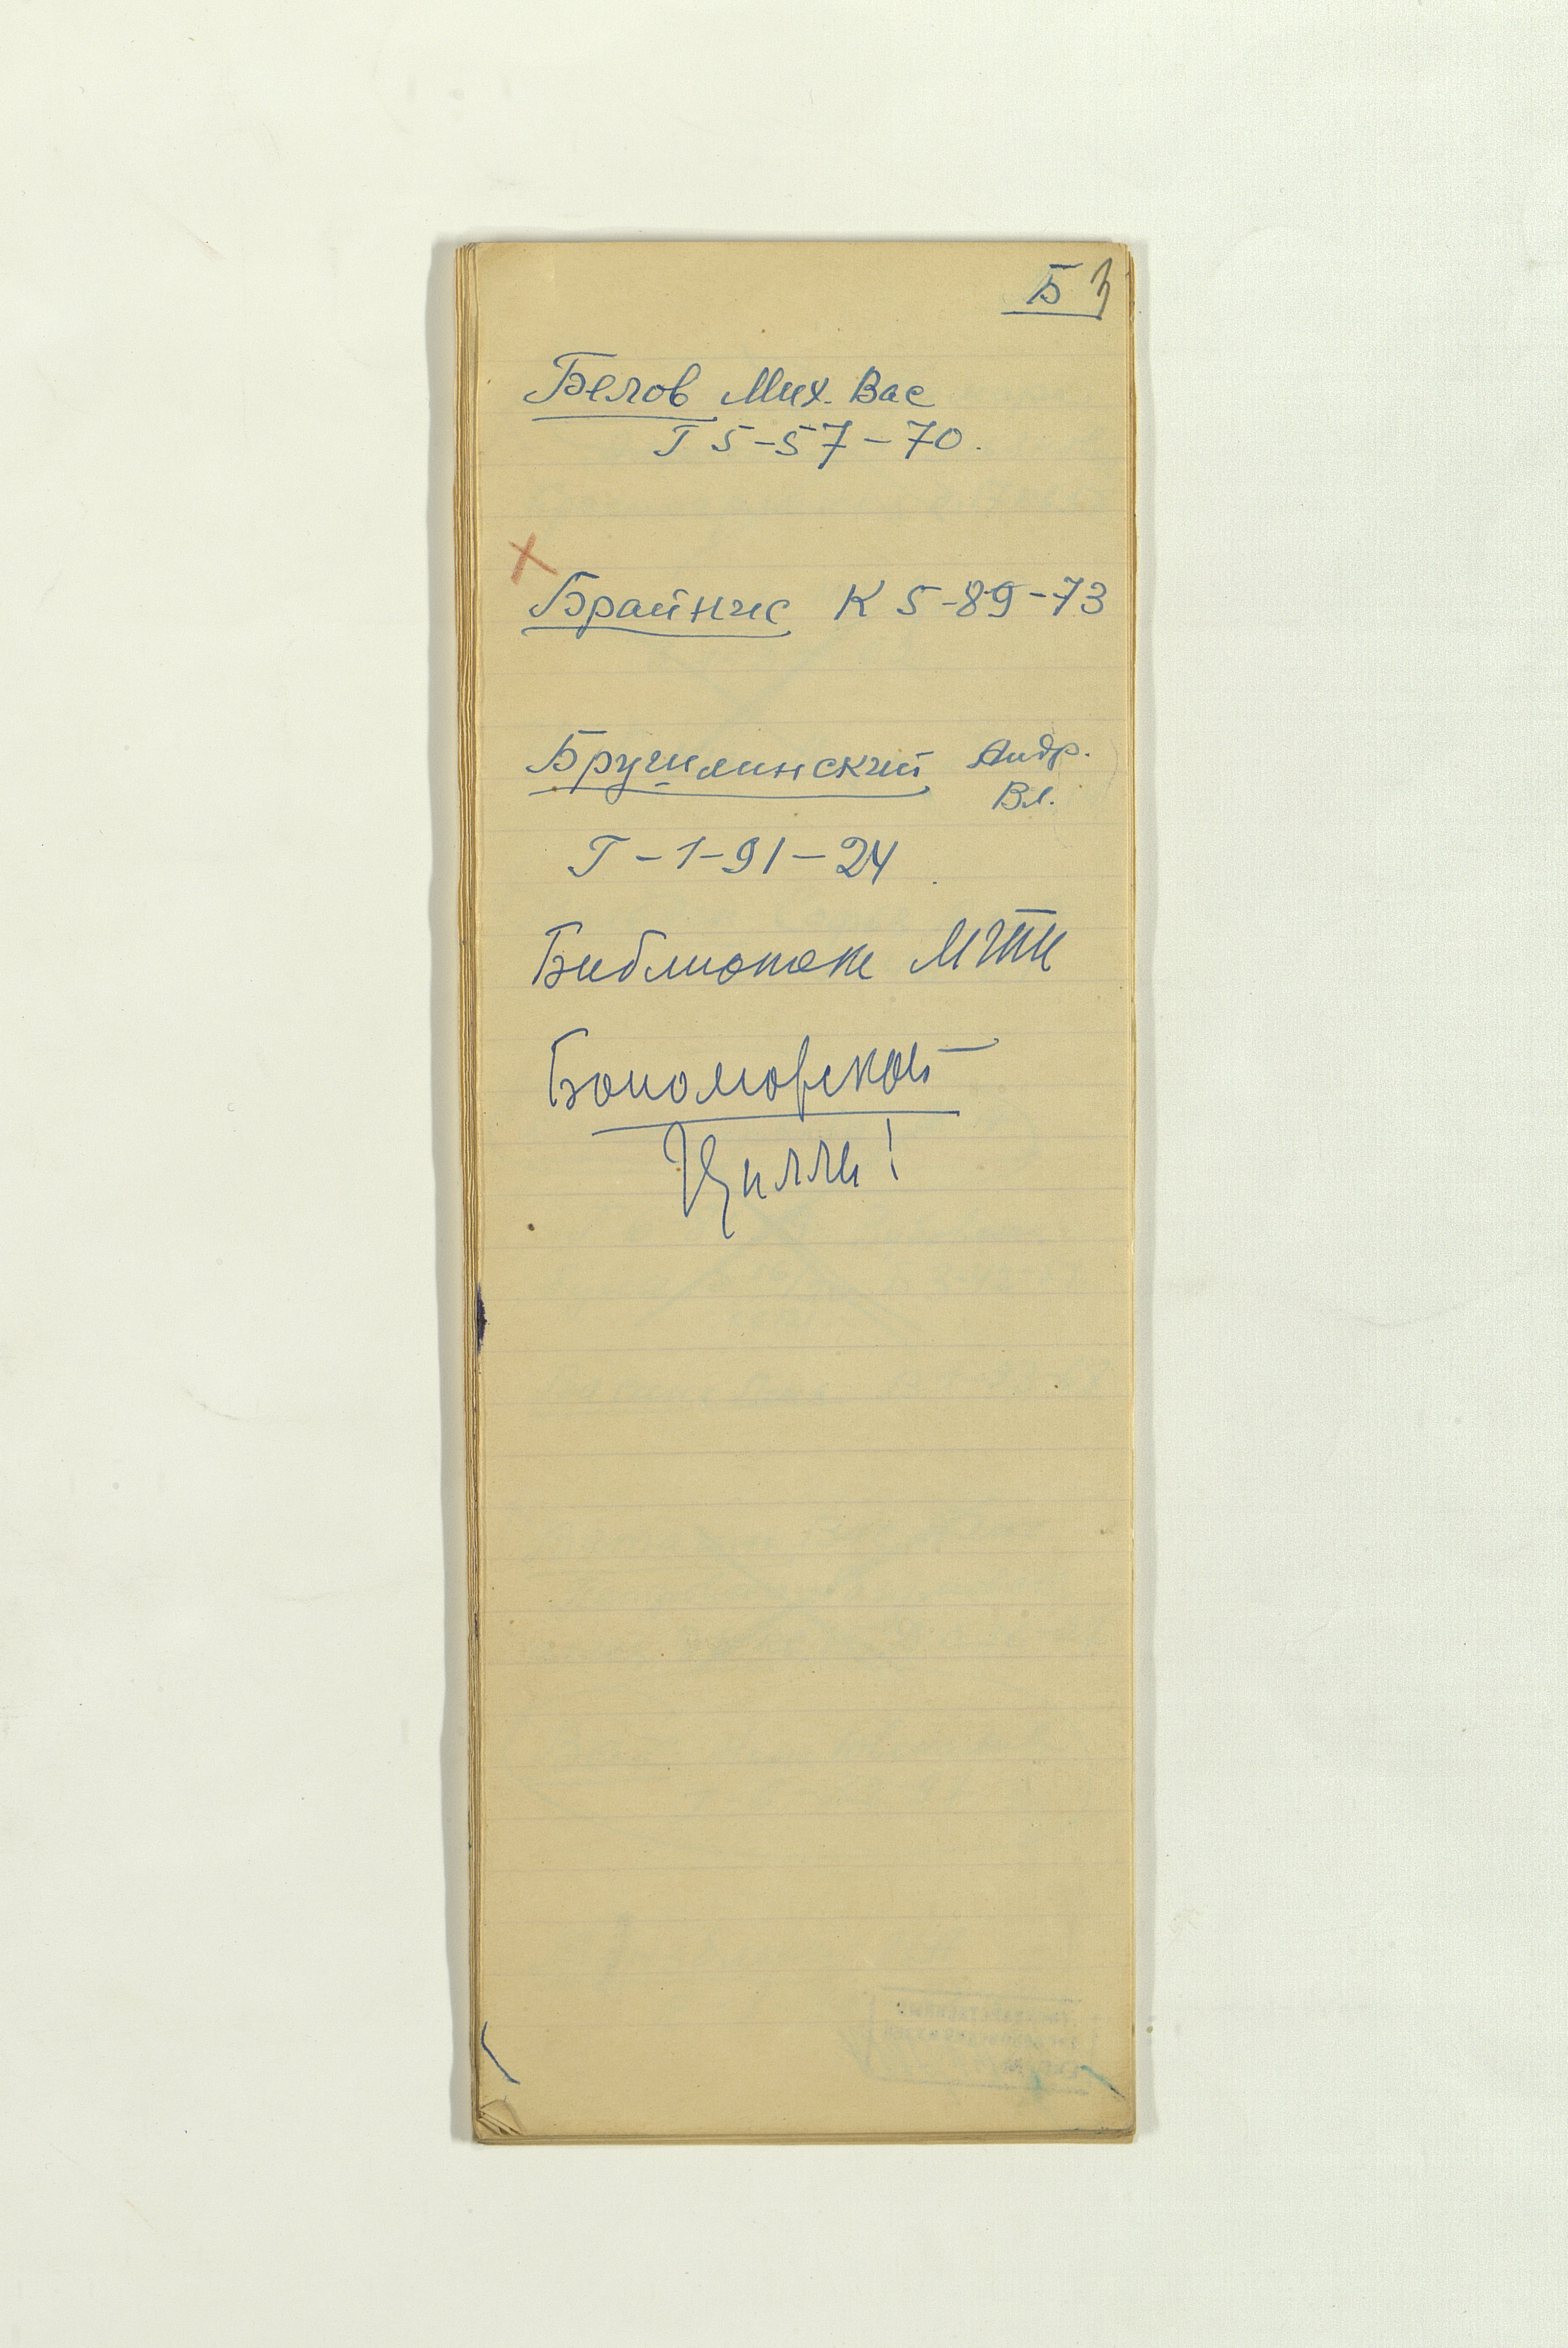 Б 3
Белов Мих. Вас
Г 5-57-70.
Брайнис К 5-89-73
Брушлинский Андр.
Вл.
Г-1-91-24
Библиотека МГПИ
Цилли!